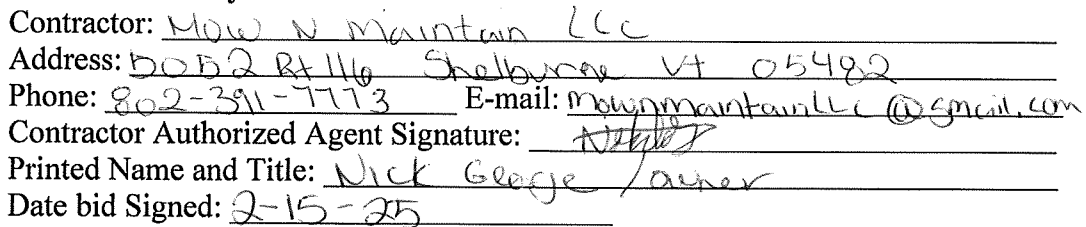 Contractor: Mow N Maintain LLC
Address: 5052 Rt 116 Shelburne Vt 05482
Phone: 802-391-7773 E-mail: mownmaintainLLC@gmail.com
Contractor Authorized Agent Signature:
Printed Name and Title: Nick George / owner
Date bid Signed: 2-15-25